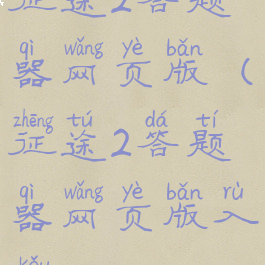 征途2答题
qì wǎng yè bǎn
器网页版（
zhēng tú dá tí
征途2答题
qì wǎng yè bǎn rù
器网页版入
kǒu